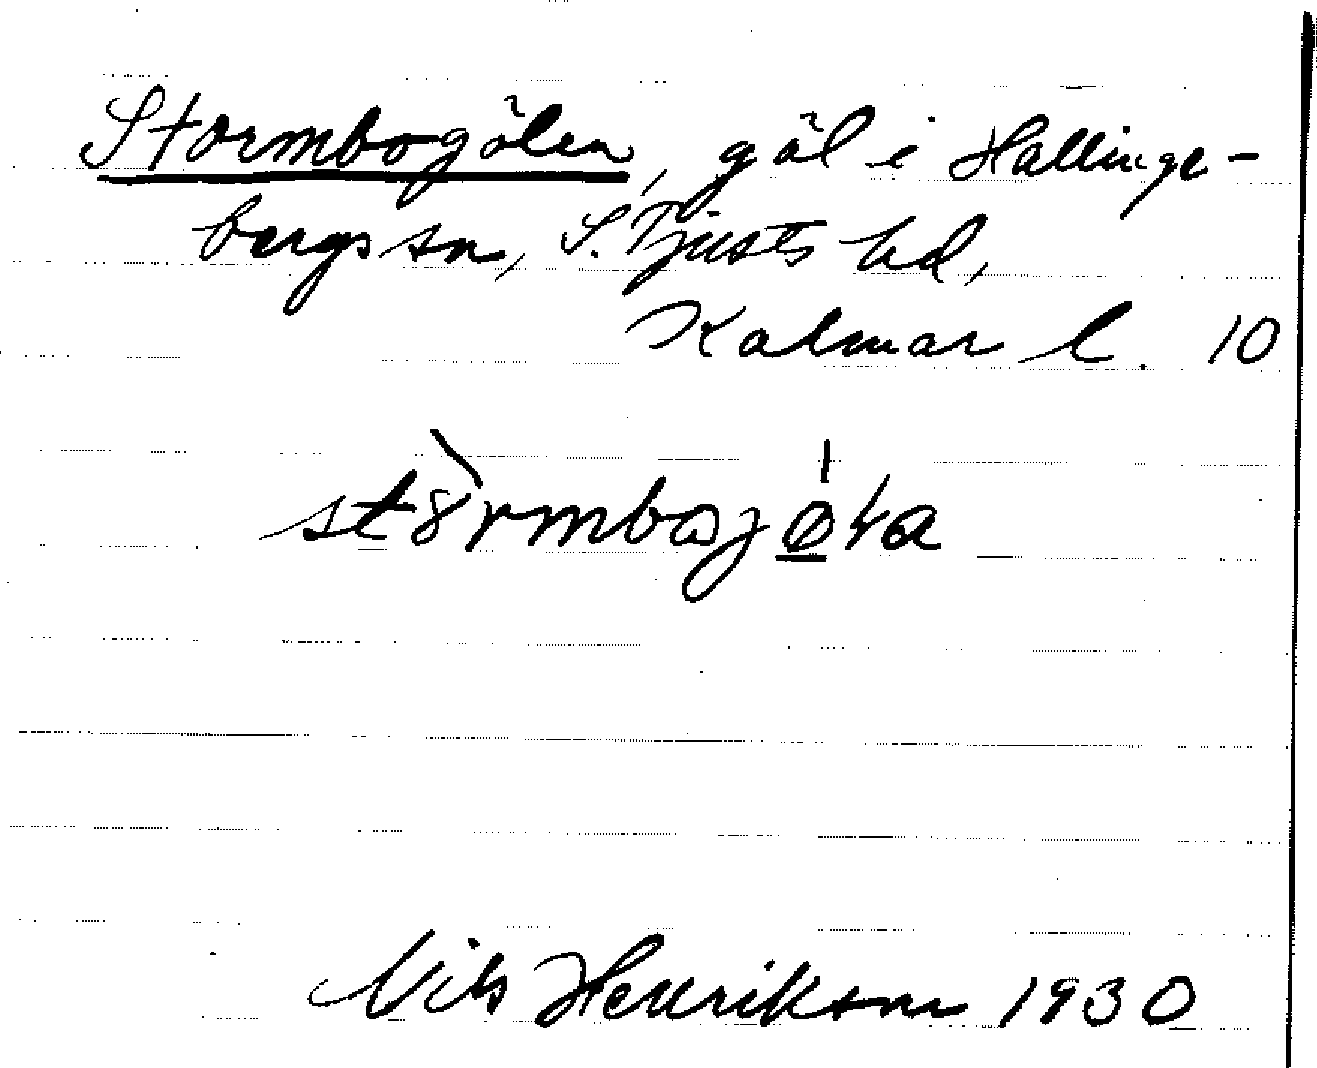 Stormbogölen, göl i Hallinge-
bergs sn, S. Tjusts hd,
Kalmar l. 10
Nils Henrikson 1930